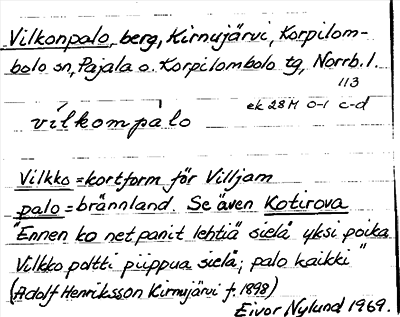 Vilkonpalo, berg, Kirnujärvi, Korpilom-
bolo sn, Pajala o. Korpilombolo tg, Norrb. l.
113
ek 28M 0-1 c-d
vilkompalo
Vilkko = kortform för Villjam
palo = brännland. Se även Kotirova
"Ennen ko net panit lehtiä sielä yksi poika
Vilkko poltti piippua sielä; palo kaikki"
(Adolf Henriksson Kirnujärvi f. 1898)
Eivor Nylund 1969.